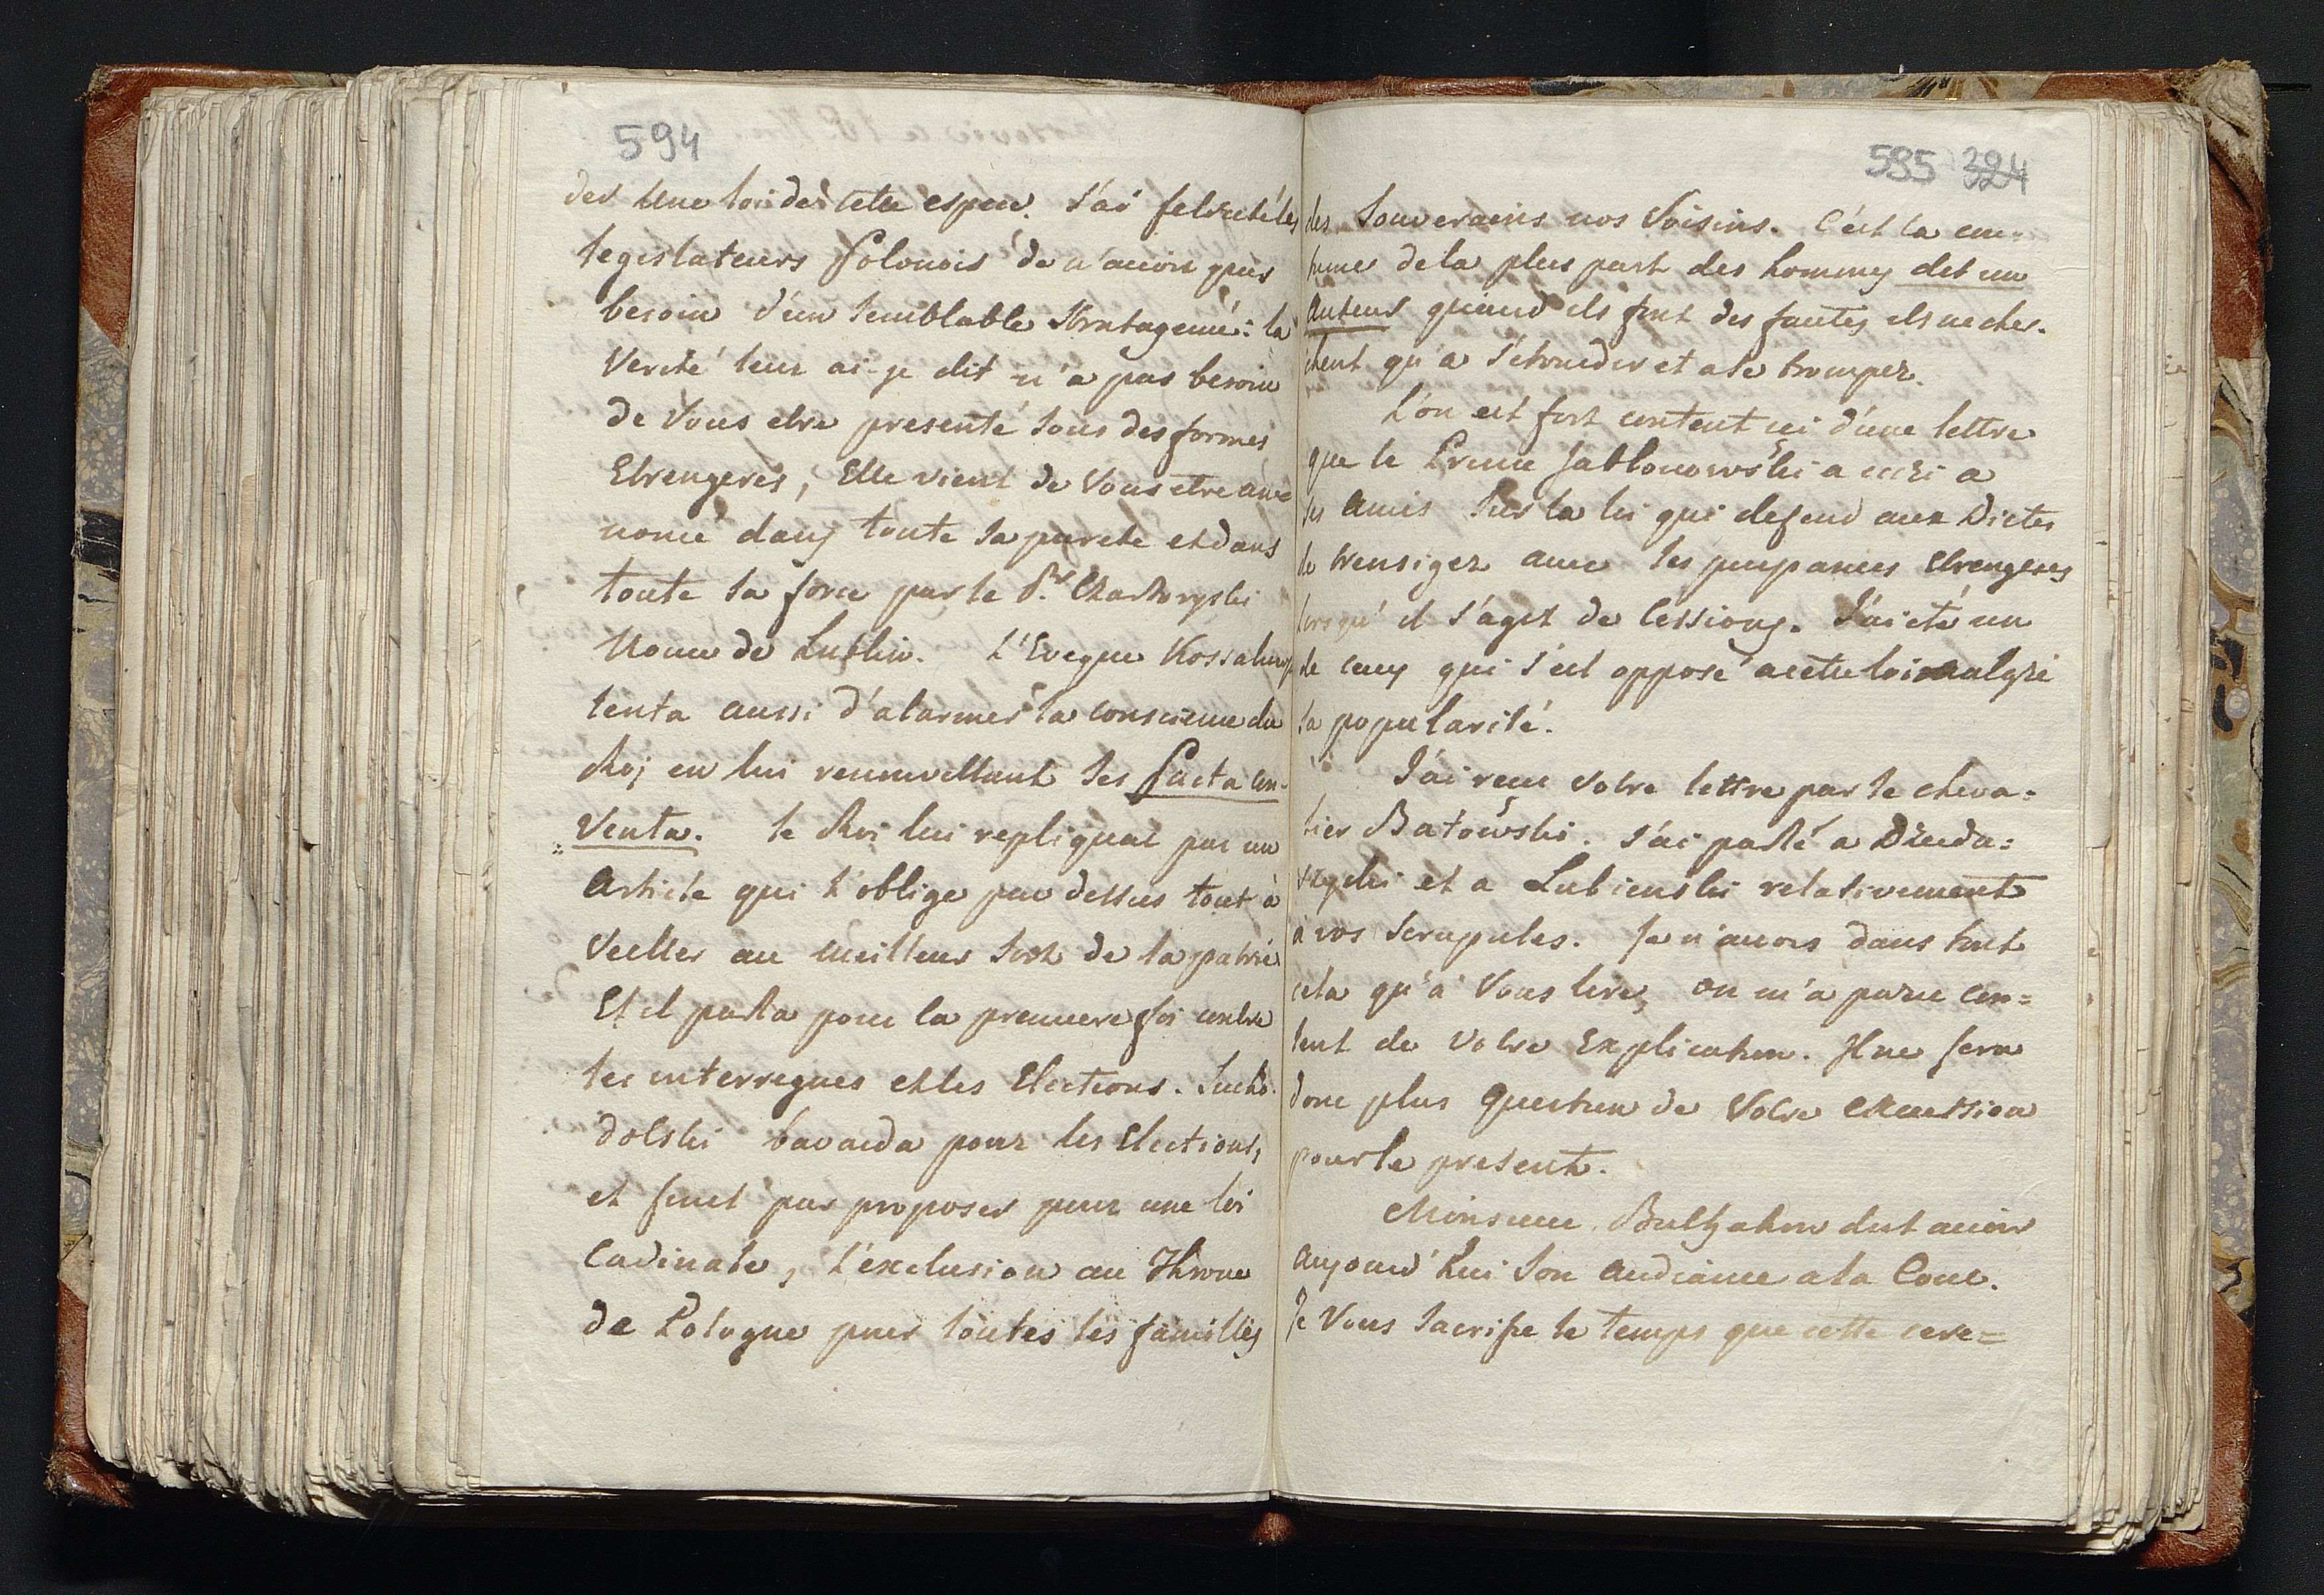 594
der une loi de cette espece. J'ai felicité les
legislateurs Polonois de n'avoir pas
besoin d'un semblable stratageme: la
Verité leur ai-je dit n'a pas besoin
de Vous etre presenté sous des formes
Etrengeres, Elle vient de Vous etre an=
noncé dans toute sa pureté et dans
toute sa force par le Pr. Chartoryski
Nonce de Lublin. L'Eveque Kossakows
tenta aussi d'alarmer la conscience du
Roj en lui renouvellant ses Pacta con-
venta. le Roi lui repliqua par un
Article qui l'oblige par dessus tout à
Veiller au meilleur sort de la patrie
Et il parla pour la premiere foi contre
les interregnes et les Elections. Sucho-
dolski bavarda pour les Elections,
et finit par proposer pour une loi
Cadinale, l'exclusion au Throne
de Pologne pour toutes les familles
595 324
des Souverains nos Voisins. C'est la cou=
tume de la plus part des hommes dit un
Auteur quand ils font des fautes ils ne cher-
chent qu'a s'etourdir et a se tromper.
L'on est fort content ici d'une lettre
que le Prince Jablonowski a ecri a
ses Amis sur la loi qui defend aux Dietes
de trensiger avec les puipances Etrengeres
lorsqu'il s'agit de Cessions. J'ai eté un
de ceux qui s'est opposé a cette loi malgré
sa popularité.
J'ai recu votre lettre par le cheva=
lier Batowski. J'ai parlé a Dzieda=
szycki et a Lubienski relativement
à vos Scrupules. Je n'avois dans tout
cela qu'à Vous lire, on m'a paru con=
tent de Votre Explication. Il ne sera
donc plus Question de Votre excursion
pour le present.
Monsieur Bulhakow dut avoir
aujourd'hui son audiance a la Cour.
Je Vous sacrifie le temps que cette cere=